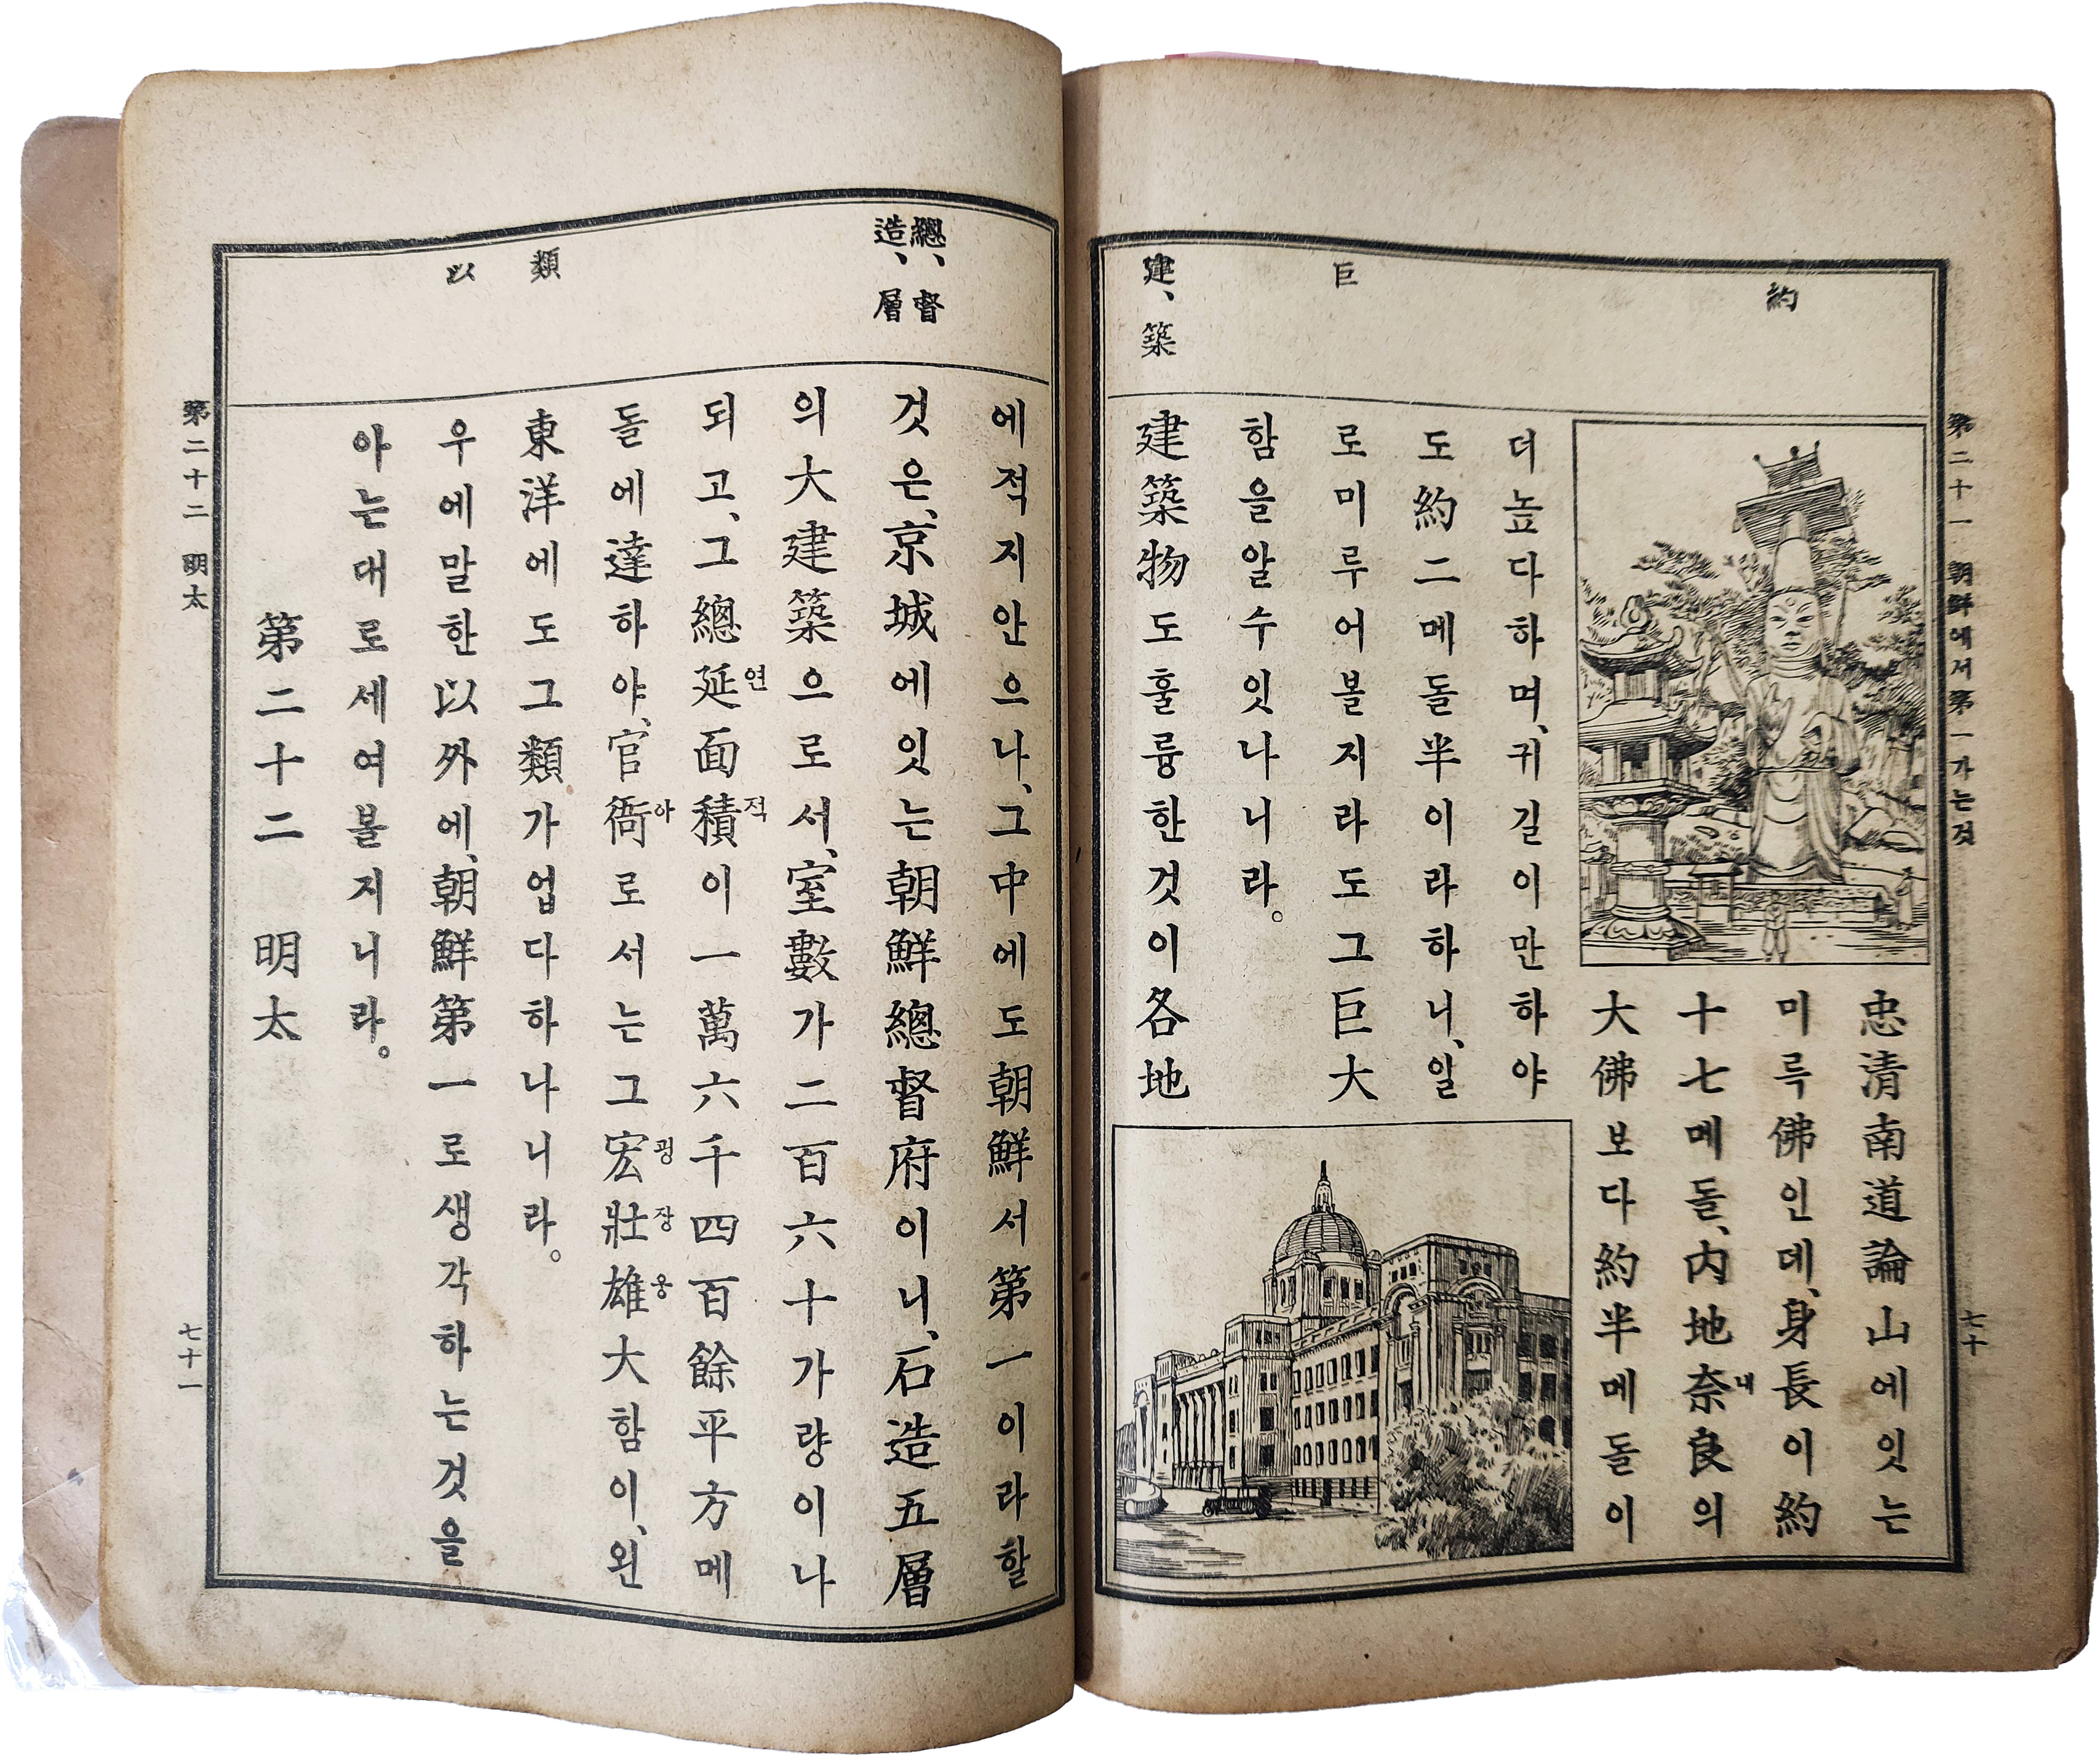 第二十一 朝鮮에서第一가는것
七十
約
巨
建、築
忠淸南道論山에잇는
미륵佛인데、身長이約
十七메돌、內地奈내良의
大佛보다約半메돌이
더높다하며、귀길이만하야
도約二메돌半이라하니、알
로미루어볼지라도그巨大
함을알수잇나니라。
建築物도훌륭한것이各地
總、督
造、層
類
以
에적지안으나、그中에도朝鮮서第一이라할
것은、京城에잇는朝鮮總督府이니、石造五層
의大建築으로서、室數가二百六十가량이나
되고、그總延연面積적이一萬六千四百餘平方메
돌에達하야、官衙아로서는그宏굉壯장雄웅大함이、왼
東洋에도그類가업다하나니라。
우에말한以外에、朝鮮第一로생각하는것을
아는대로세여볼지니라。
第二十二 明太
第二十二 明太
七十一